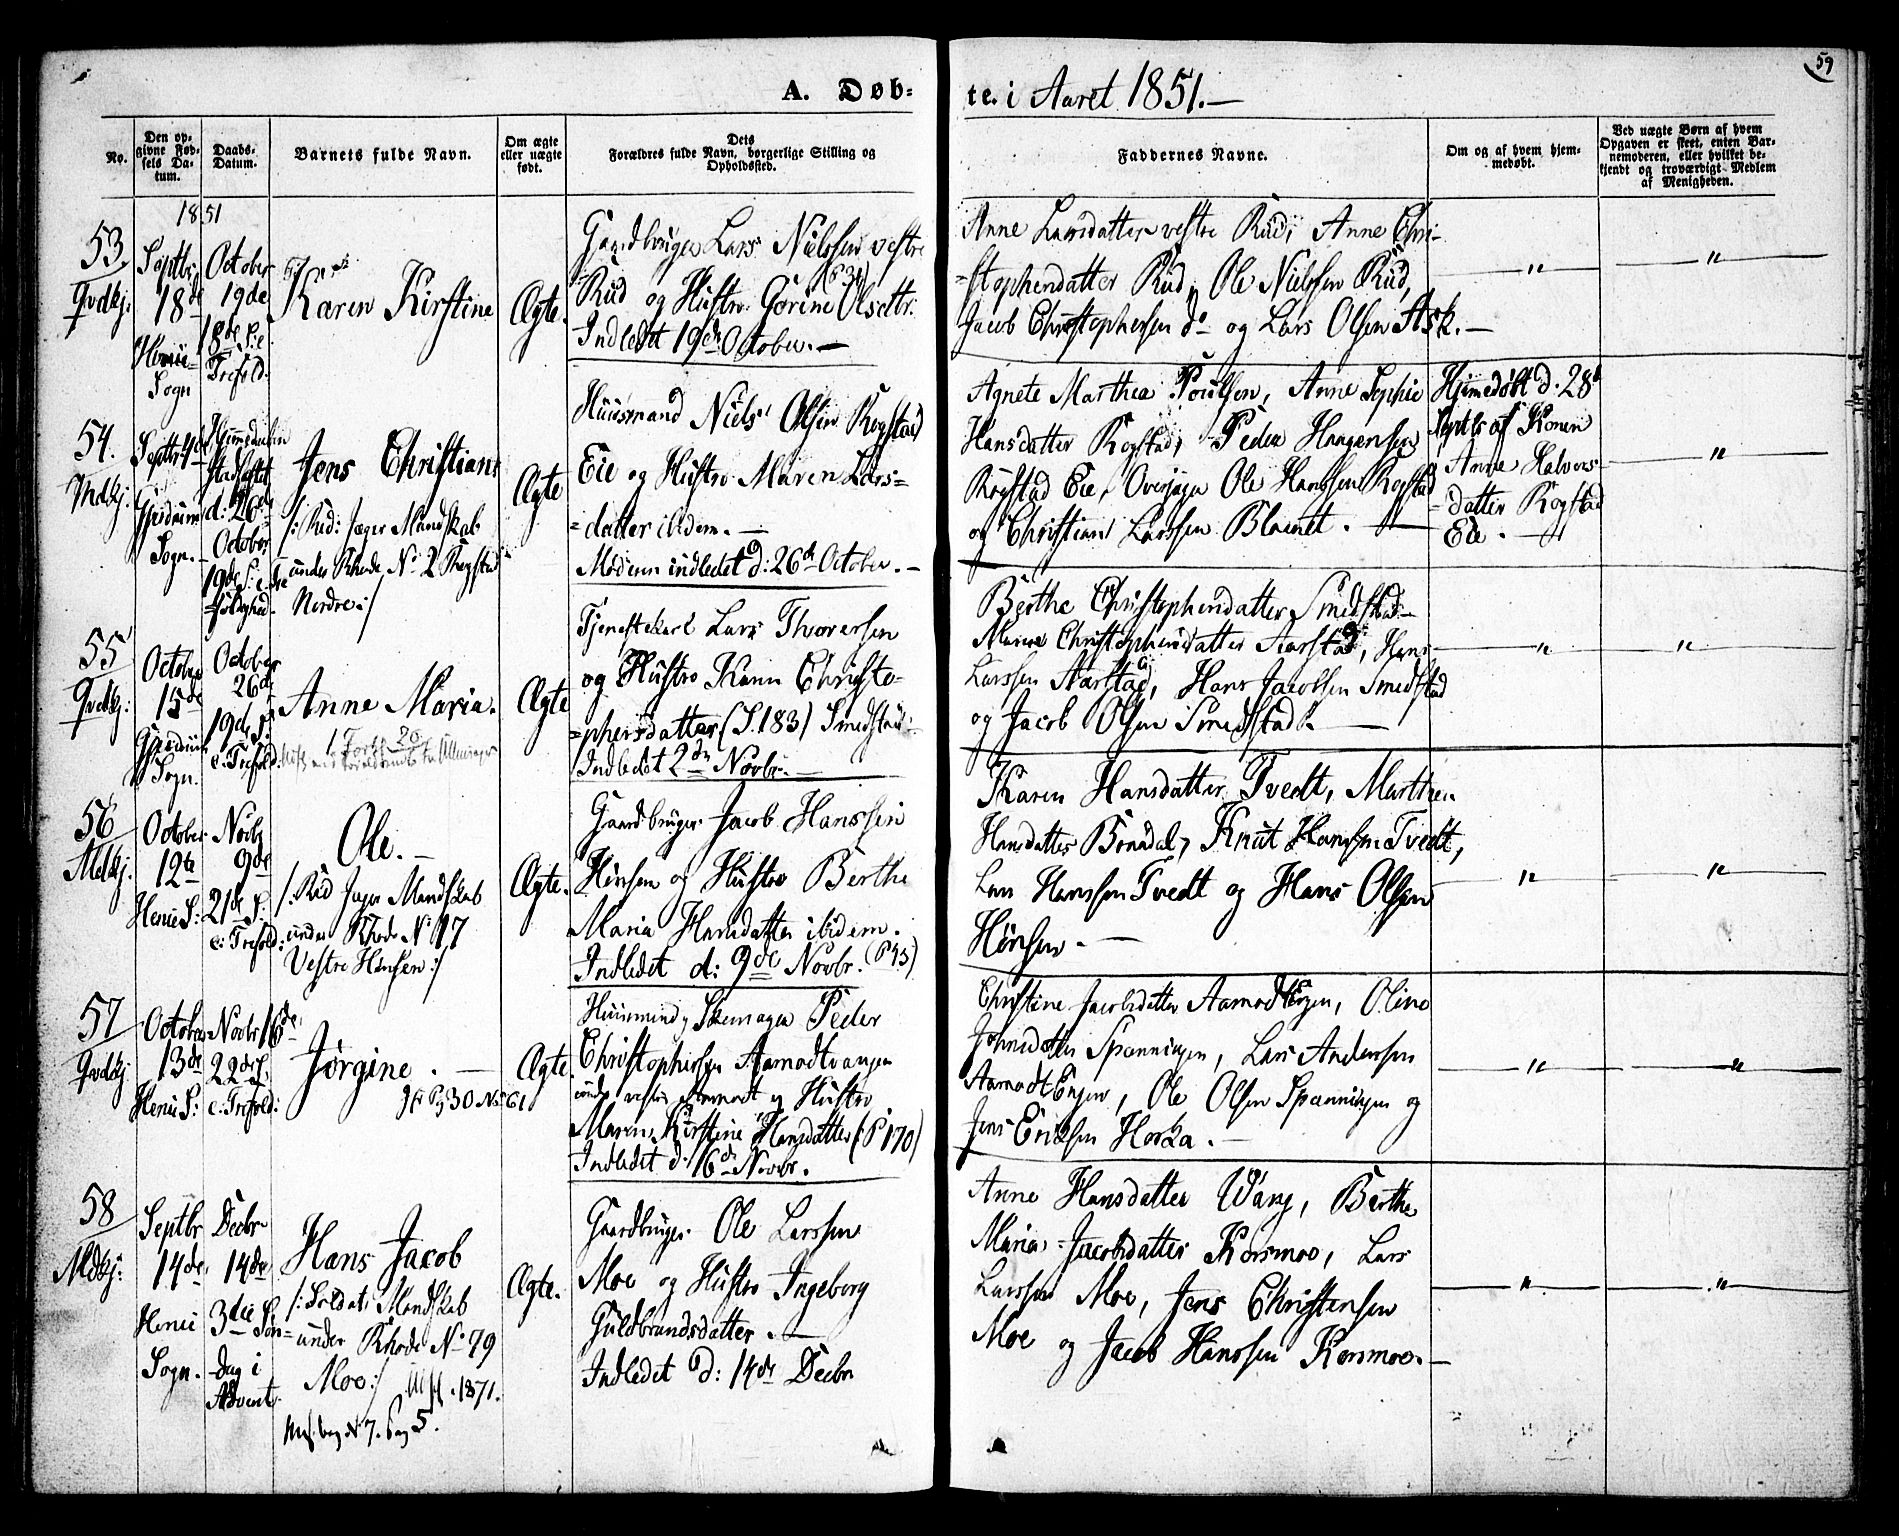 59
A. Døb-
te. i Aaret 1851.—
No.
Den op-
givne Fød-
sels Da-
tum.
Daabs-
Datum.
Barnets fulde Navn.
Om ægte
eller uægte
født.
Dets
Forældres fulde Navn, borgerlige Stilling og
Opholdssted.
Faddernes Navne.
Om og af hvem hjem-
medøbt.
Ved uægte Børn af hvem
Opgaven er skeet, enten Bar-
nemoderen, eller hvilket be-
kjendt og troværdigt Medlem
af Menigheden.
1851
53.
Qvdkj.
Septbr.
18de
Sogn
October
19de
18de S: e
Trefold.
Karen Kirstine
Ægte.
Gaardbruger Lars Nielssen vestre
Rud og Hustro Gorine Olsdtr.
Indledet 19de October.—
Anne Larsdatter vestre Rud, Anne Chri-
-stophersdatter Rud, Ole Nielssen Rud,
Jacob Christophersen do og Lars Olsen Ask.—
—"—
"
54.
Mdkj.
Septbr
Gjerdrum
Sogn.
Stadfæstet
d: 26de
October
19de S: e. Tre
Jens Christian
/: Rud: Jæger Mandskab
under Rhode No 2 Kogstad
Nordre :/
Ægte
Huusmand Niels Olsen Kogstad
Eie og Hustro Maren Lars-
-datter ibidem.—
Moderen indledet d: 26de October.—
Agnete Marthea Poulsen, Anne Sophie
Hansdatter Kogstad, Peder Haagensen
Kogstad Eie, Overjæger Ole Hanssen Kogstad
og Christian Larssen —
Hjemmedøbt d. 28de
Septbr af Konen
Anne Halvors-
-datter Kogstad
Eie.—
"
55
Qvdkj:
October
15de
Gjerdrum
Sogn.
October
26de
19de S:
e: Trefold:
Anne Maria.
Ægte
Tjenestekarl Lars Thoversen
og Hustro Karen Christo-
-phersdatter (S. 183) Smedstad
Indledet 2den Novbr.—
Berthe Christophersdatter Smedstad—
Maren Christophersdatter Aarstad, Hans
Larssen Aarstad, Hans Jacobsen Smedstad
og Jacob Olsen Smedstad.—
"
"
56
Mdkj.
October
12te
Henie S:
Novbr
9de
21de S:
e: Trefold:
Ole.—
/: Rud Jæger Mandskab
under Rhode No 17
Vestre Hønsen :/
Ægte.
Gaardbruger Jacob Hanssen
Hønsen og Hustro Berthe
Maria Hansdatter ibidem.
Indledet d: 9de Novbr.
Karen Hansdatter Tvedt, Marthe
Hansdatter Knut Hanssen Tvedt,
Lars Hanssen Tvedt og Hans Olsen
Hønsen.—
"
"
57
Qvdkj
October
13de
Henie S:
Novbr 16de
22de S.
e: Trefold:
Jørgine.—
Ægte.
Huusmand, Skomager Peder
Christophersen Aamodtvangen
under vestre Aamodt og Hustro
Maren Kirstine Hansdatter (P 170)
Indledet d: 16de Novbr.
Christine Jacobsdatter Aamodtengen, Oline
Spanningen, Lars Andersen
Aamodt Engen, Ole Olsen Spanningen og
Jens Eriksen Horka.—
"
"
58
Mdkj:
Septbr
14de
Henie
Sogn.
Decbr
14de
3die Søn-
-dag i
Advent.
Hans Jacob
/: Soldat: Mandskab
under Rhode No 79
Moe :/
1871.
7. Pag 5.
Ægte.
Gaardbruger Ole Larssen
Moe og Hustro Ingeborg
Guldbrandsdatter.—
Indledet d: 14de Decbr
Anne Hansdatter Wang, Berthe
Maria Jacobsdatter Korsmoe, Lars
Larssen Moe, Jens Christensen
Moe og Jacob Hanssen Korsmoe.—
"
"